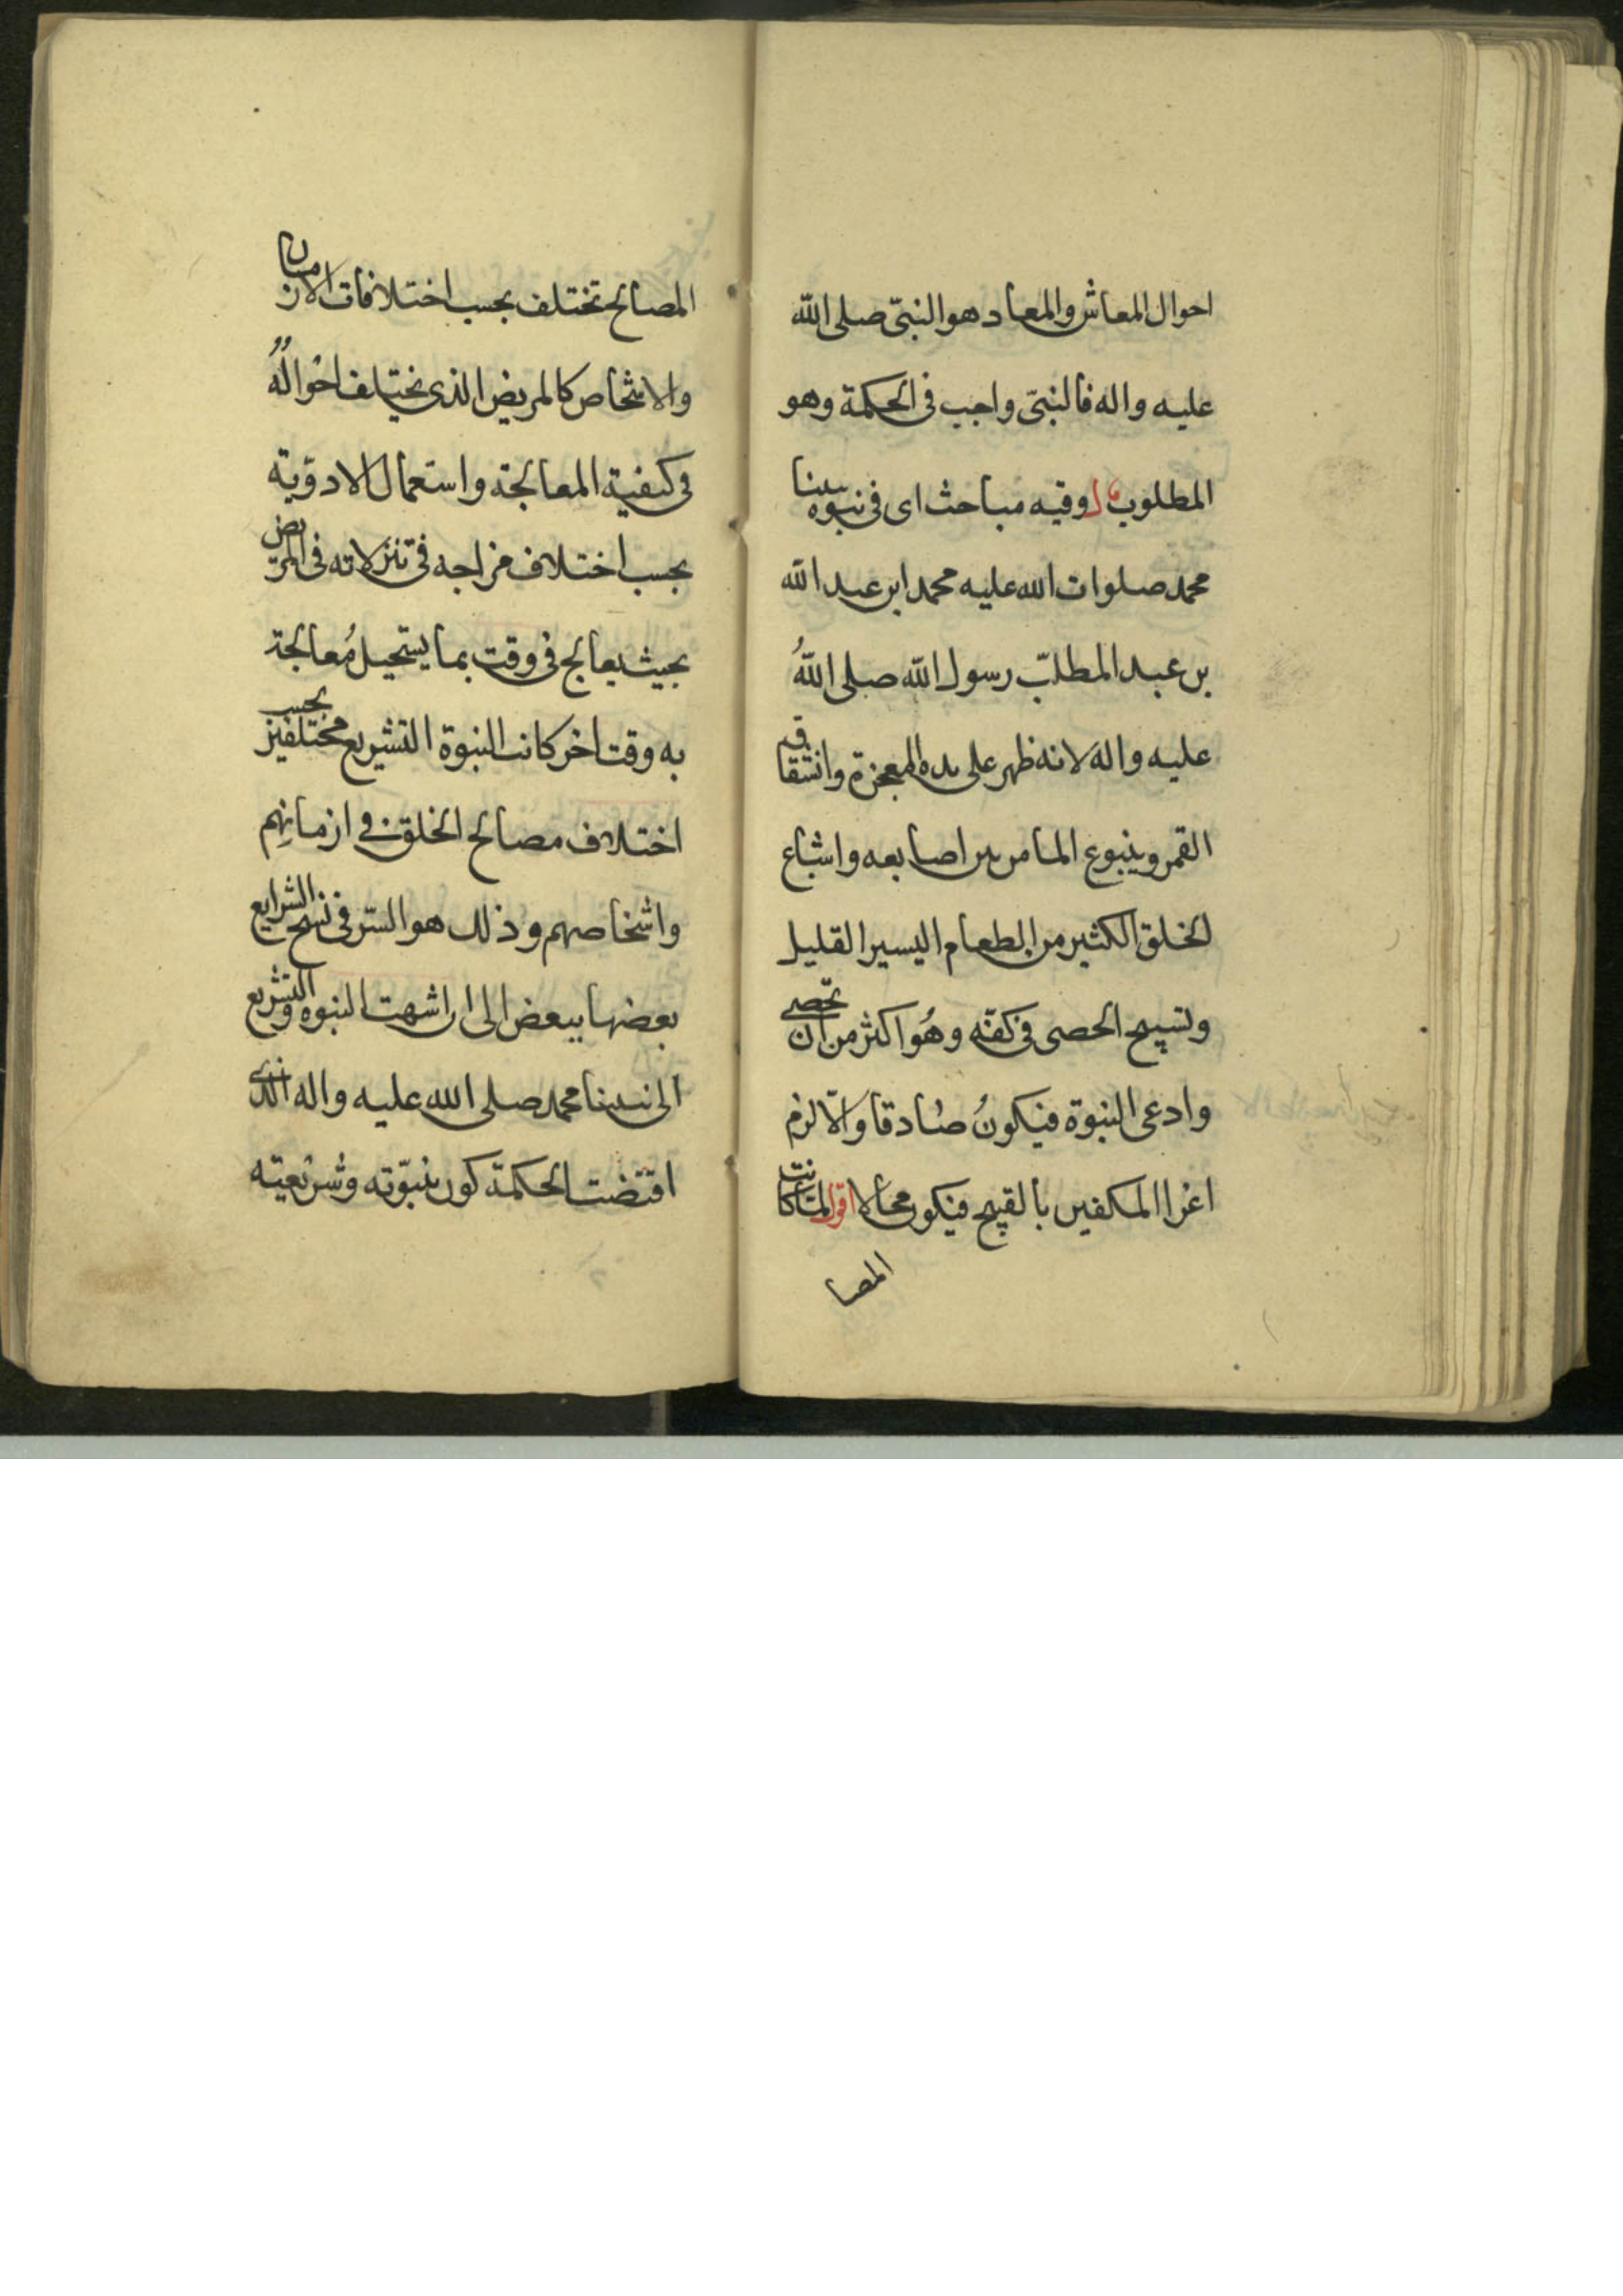 احوال المعاش والمعاد هو النبىّ صلى الله
عليه واله فالنبىّ واجب فى الحكمة وهو
المطلوب وفيه مباحث اى فى نبوه نبينا
محمد صلوات الله عليه محمد ابن عبد الله
بن عبد المطلبّ رسول الله صلى اللهُ
عليه واله لانه ظهر على يده المعجزة وانشقاق
القمر وينبوع الما من بين اصابعه واشباع
الخلق الكثير من الطعام اليسير القليل
وتسبيح الحصى فى كفّه وهُو اكثر من ان تحصى
وادعى النبوة فيكونُ صادقا والّا لزم
اغرا المكفين بالقبيح فيكون محالا اقول لما كانت
المصا
المصالح تختلف بحسب اختلافات الازمان
والاشخاص كالمريض الذى يختلف احوالُهُ
فى كيفية المعالجة واستعمال الادوية
بحسب اختلاف مزاجه فى تنزلاته فى المرض
بحيث يعالج فى وقت بما يستحيل مُعالجة
به وقت اخر كانت النبوة التشريع مختلفين بحسب
اختلاف مصالح الخلق فى ازمانِهم
واشخاصهم وذلك هو السّر فى نسخ الشرايع
بعضها ببعض الى ان اشهت النبوه والتشريع
الى نبينا محمد صلى الله عليه واله الذى
اقتضت الحكمة كون نبوّته وشريعته